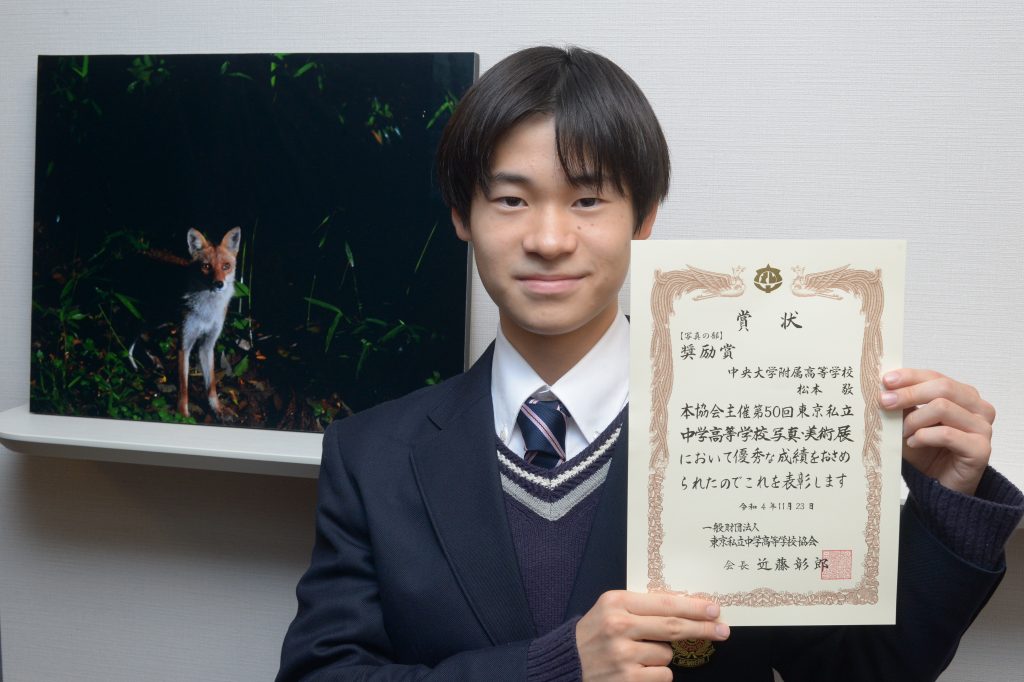 賞状
【写真の部】
奨励賞
中央大学附属高等学校
松本 敬
本協会主催第50回東京私立
中学高等学校写真・美術展
において優秀な成績をおさめ
られたのでこれを表彰します
令和4年11月23日
一般財団法人
東京私立中学高等学校協会
会長 近藤彰郎